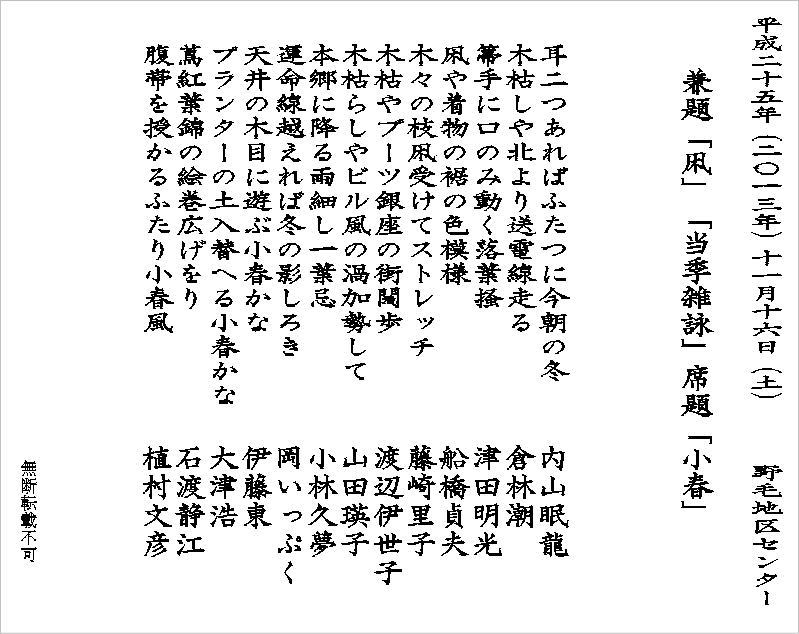 平成二十五年（二〇一三年）十一月十六日（土）　野毛地区センター
兼題「凩」　「当季雑詠」席題「小春」
耳二つあればふたつに今朝の冬　内山眠龍
木枯しや北より送電線走る　倉林潮
箒手に口のみ動く落葉掻　津田明光
凩や着物の裾の色模様　船橋貞夫
木々の枝凩受けてストレッチ　藤崎里子
木枯やブーツ銀座の街闊歩　渡辺伊世子
木枯らしやビル風の渦加勢して　山田瑛子
本郷に降る雨細し一葉忌　小林久夢
運命線越えれば冬の影しろき　岡いっぷく
天井の木目に遊ぶ小春かな　伊藤東
プランターの土入替へる小春かな　大津浩
蔦紅葉錦の絵巻広げをり　石渡静江
腹帯を授かるふたり小春風　植村文彦
無断転載不可